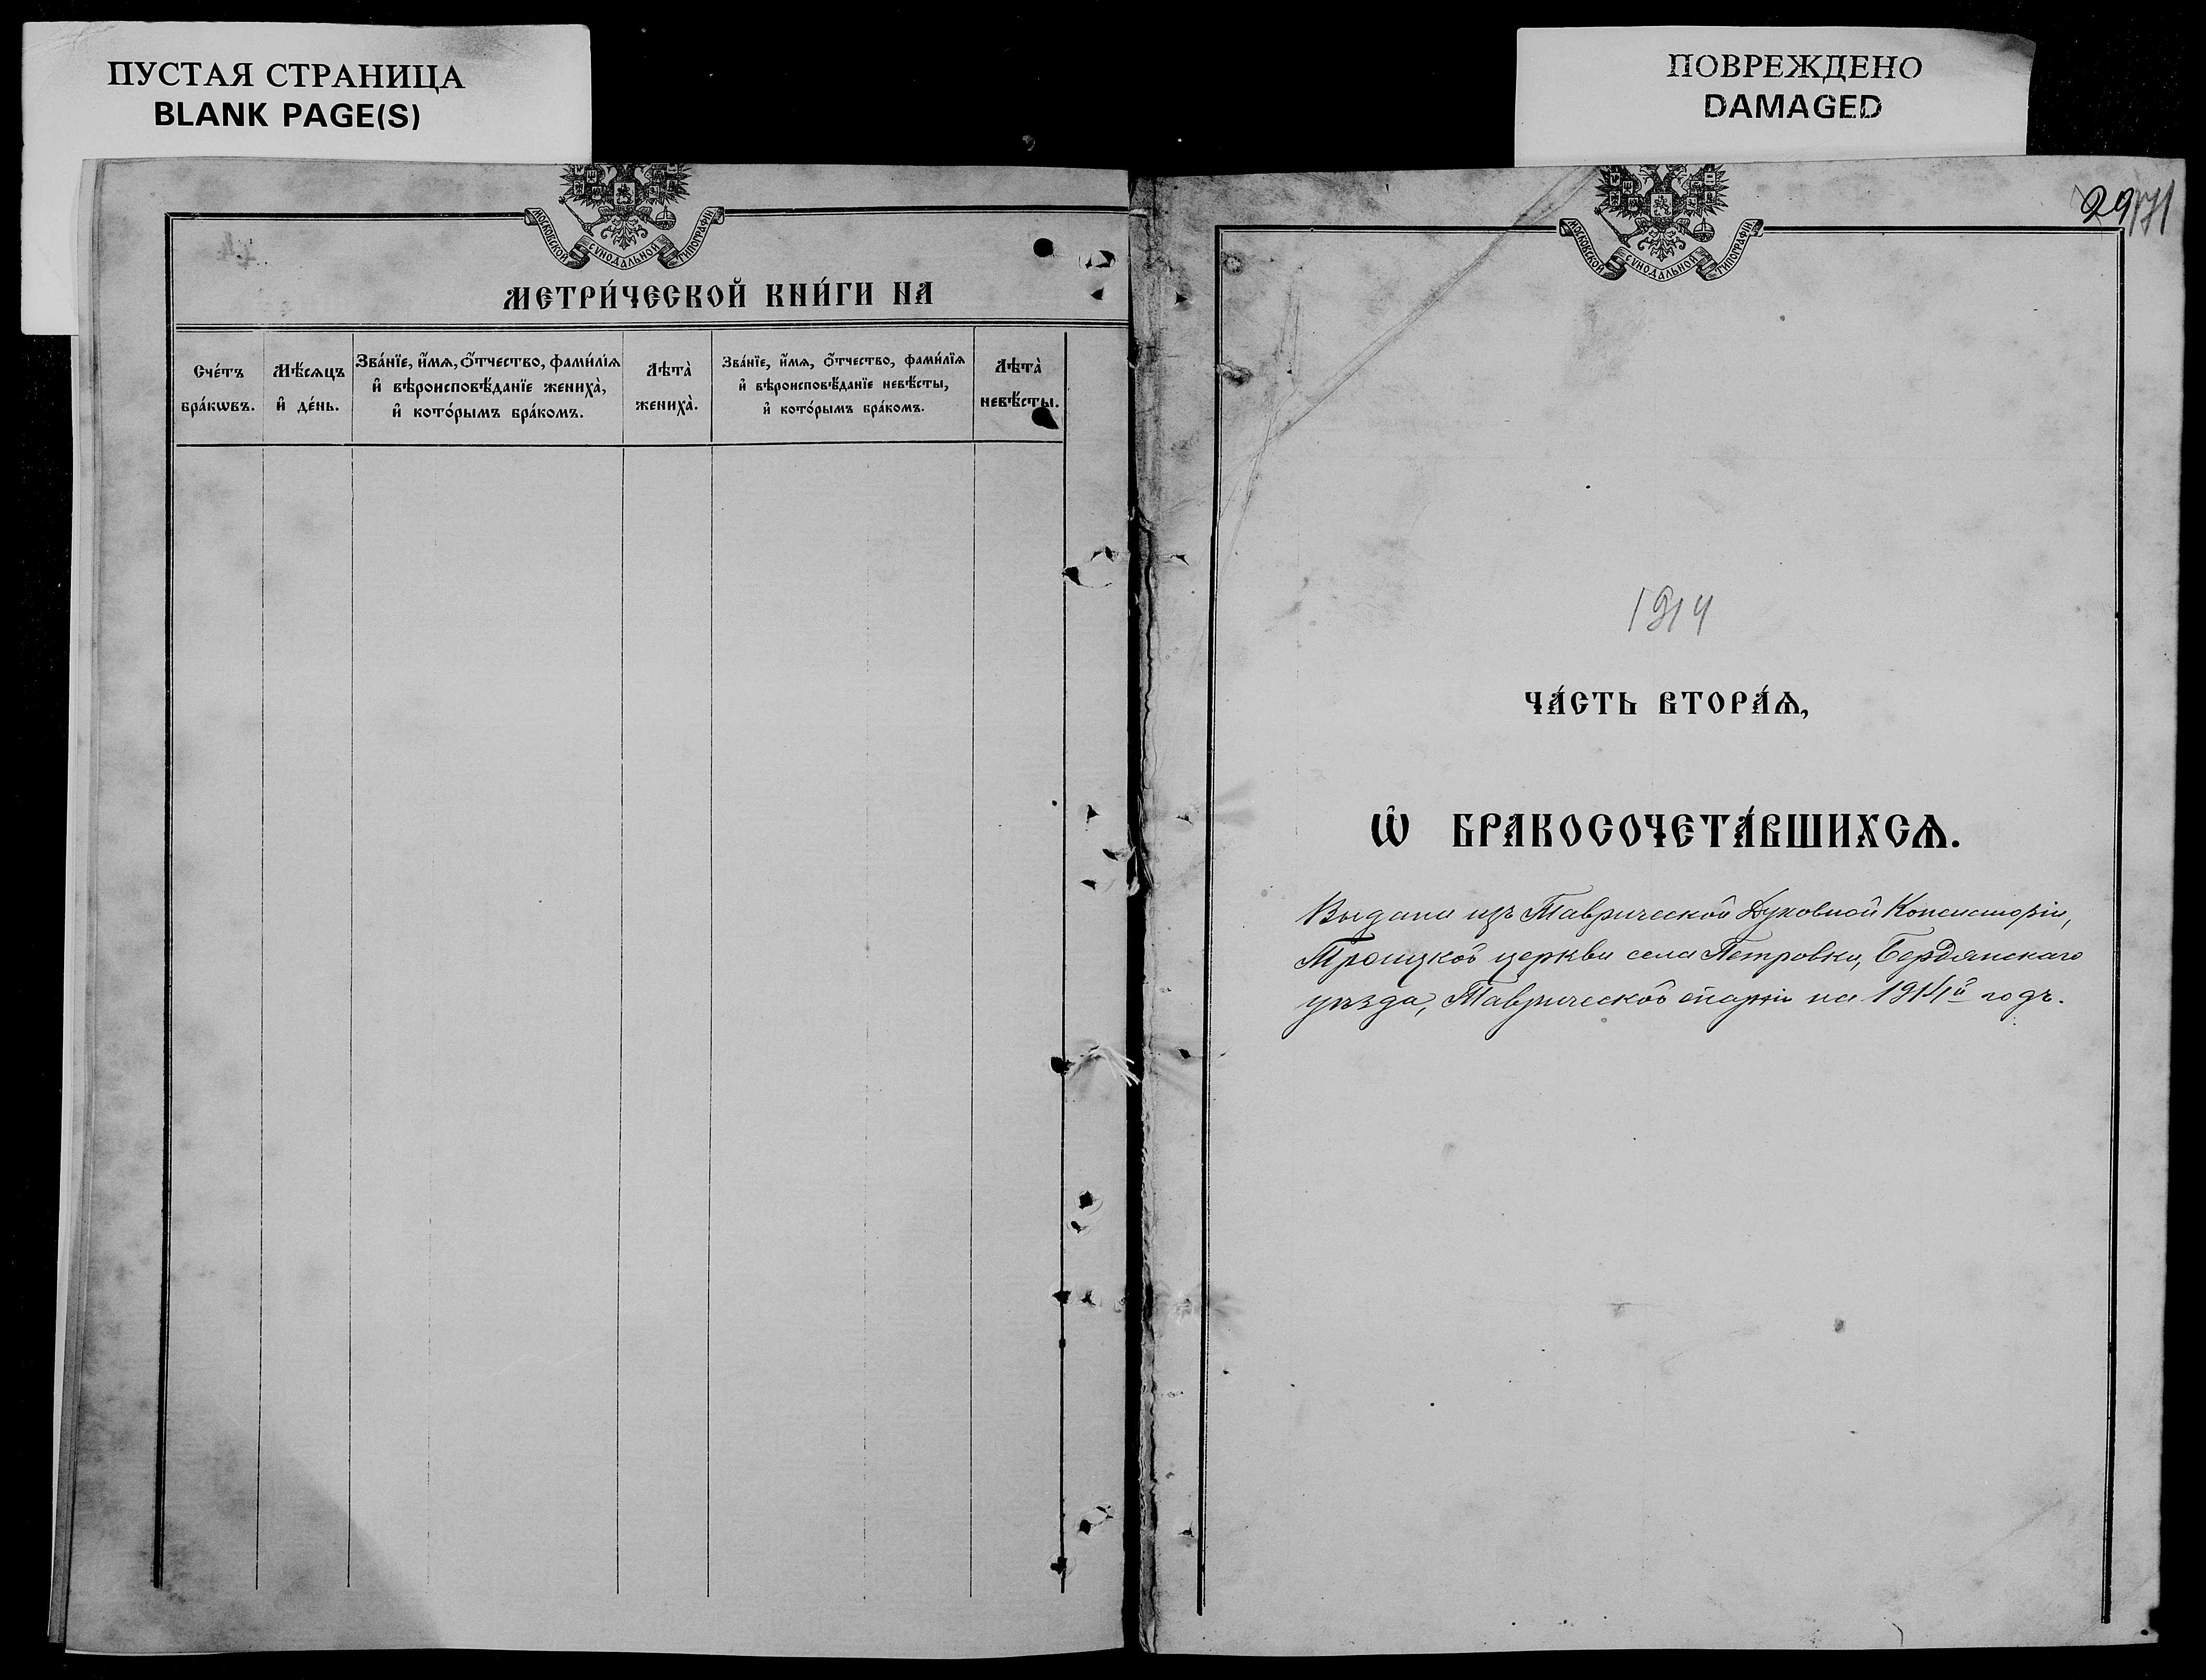 ПУСТАЯ СТРАНИЦА
BLANK PAGE(S)
МОСКОВСКОЙ СѴНОДАЛЬНОЙ ТИПОГРАФІИ
МЕТРИ́ЧЕСКОЙ КНИ́ГИ НА
Сче́тъ бра́кѡвъ.
Мѣ́сѧцъ и҆ де́нь.
Зва́нїе, и҆́мѧ, ѻ҆́тчество, фами́лїѧ
и҆ вѣроисповѣ́данїе жениха̀,
и҆ кото́рымъ бра́комъ.
Лѣта̀ жениха̀.
Зва́нїе, и҆́мѧ, ѻ҆́тчество, фами́лїѧ
и҆ вѣроисповѣ́данїе невѣ́сты,
и҆ кото́рымъ бра́комъ.
Лѣта̀ невѣ́сты.
ПОВРЕЖДЕНО
DAMAGED
МОСКОВСКОЙ СѴНОДАЛЬНОЙ ТИПОГРАФІИ
1914
ЧА́СТЬ ВТОРА́Ѧ,
Ѡ҆ БРАКОСОЧЕТА́ВШИХСѦ.
Выдана изъ Таврической Духовной Консисторіи,
Троицкой церкви села Петровки, Бердянскаго
уѣзда, Таврической епархіи на 1914й годъ.